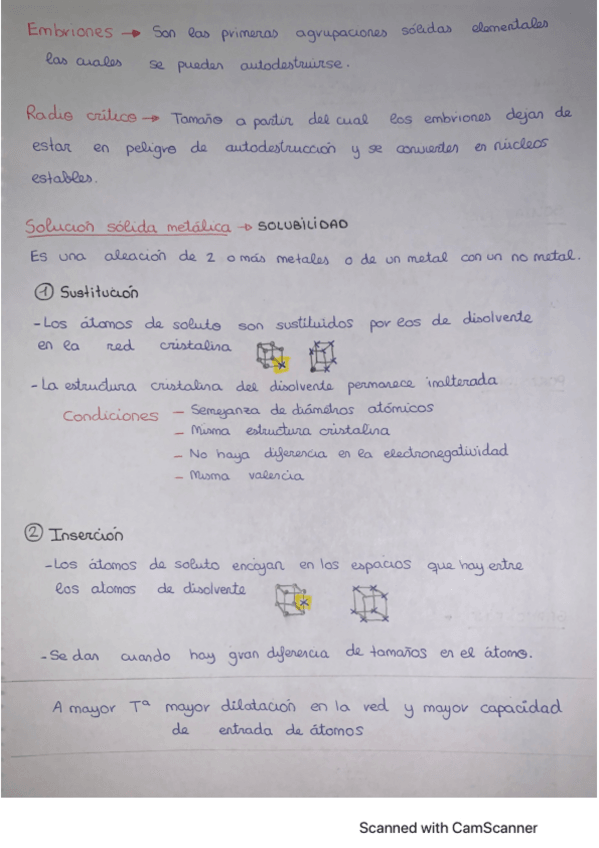 Embriones → Son las primeras agrupaciones sólidas elementales
las cuales se pueden autodestruirse.
Radio crítico → Tamaño a partir del cual los embriones dejan de
estar en peligro de autodestrucción y se convierten en núcleos
estables.
Solución sólida metálica → SOLUBILIDAD
Es una aleación de 2 o más metales o de un metal con un no metal.
① Sustitución
- Los átomos de soluto son sustituidos por los de disolvente
en la red cristalina
- La estructura cristalina del disolvente permanece inalterada
Condiciones - Semejanza de diámetros atómicos
- Misma estructura cristalina
- No haya diferencia en la electronegatividad
- Misma valencia
② Inserción
- Los átomos de soluto encajan en los espacios que hay entre
los atomos de disolvente
- Se dan cuando hay gran diferencia de tamaños en el átomo.
A mayor Tª mayor dilatación en la red y mayor capacidad
de entrada de átomos
Scanned with CamScanner